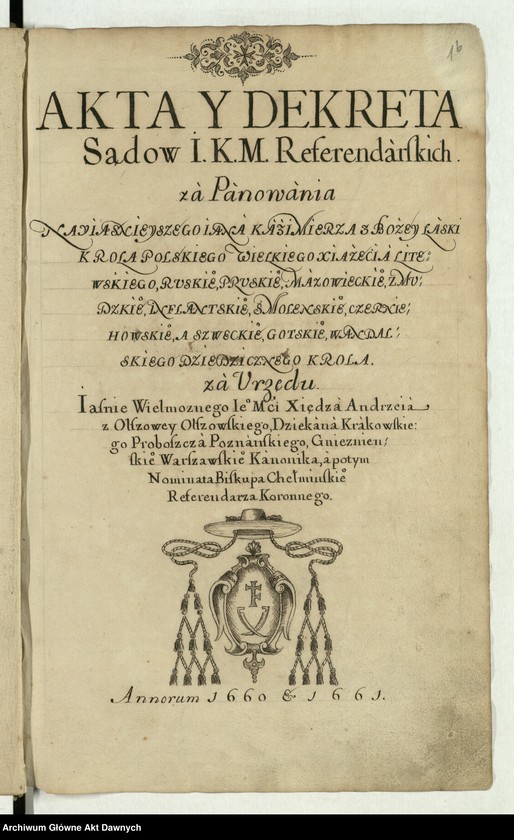 16
AKTA Y DEKRETA
Sądow I.K.M. Referendàrſkich.
zà Pànowània
NAYIASNIEYSZEGO IANA KAZIMIERZA Z BOŻEY ŁÀSKI
KROLA POLSKIEGO WIELKIEGO XIĄŻĘCIÀ LITE⸗
WSKIEGO, RVSKIEº, PRVSKIEº, MÀZOWIECKIEº, ŻMV⸗
DZKIEº, INFLANTSKIEº, SMOLENSKIEº, CZERNIE⸗
HOWSKIEº, A SZWECKIEº, GOTSKIEº, WANDAL⸗
SKIEGO DZIEDZICZNEGO KROLA.
zà Vrzędu.
Iaſnie Wielmoznego Ieº Mći Xiędzà Andrzeià
z Olſzowey Olſzowſkiego, Dziekànà Kràkowſkie⸗
go Proboſzczà Poznànſkiego, Gnieznien⸗
ſkieº Warſzawſkieº Kànonika, à potym
Nominata Biſkupa Chełminſkieº
Referendarza Koronnego.
Annorum 1660 & 1661.
Archiwum Główne Akt Dawnych